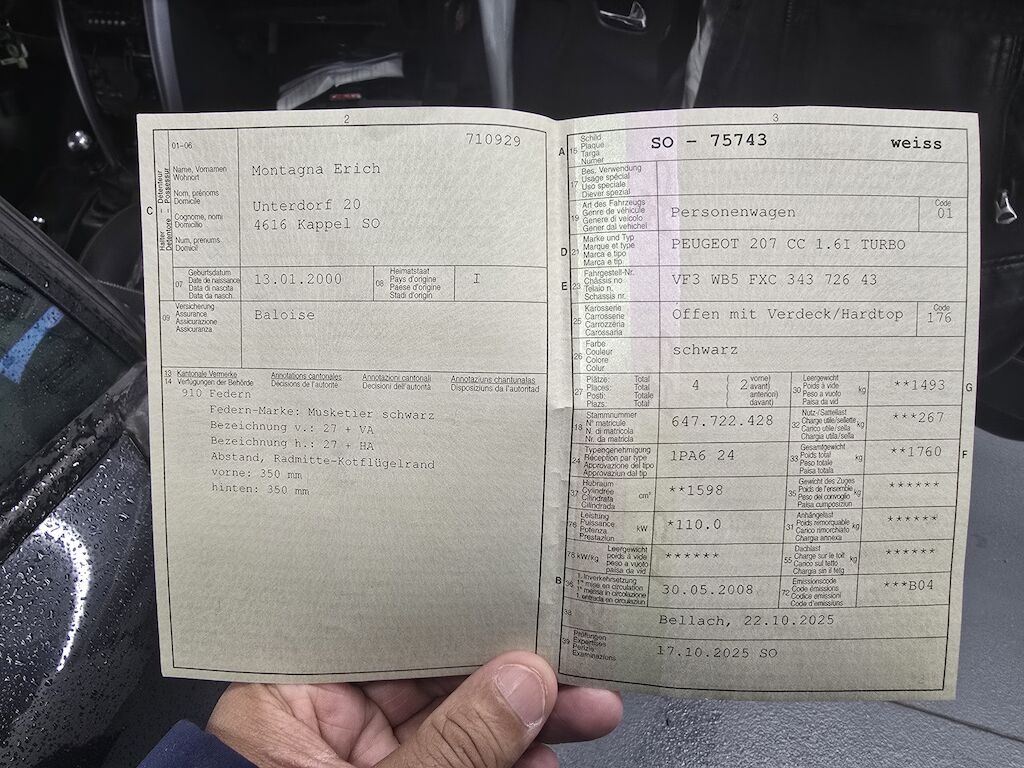 2
01-06
710929
Halter Détenteur
Detentore Possessur
C
Name, Vornamen
Wohnort
Nom, prénoms
Domicile
Cognome, nomi
Domicilio
Num, prenums
Domicil
Montagna Erich
Unterdorf 20
4616 Kappel SO
07
Geburtsdatum
Date de naissance
Data di nascita
Data da nasch.
13.01.2000
08
Heimatstaat
Pays d'origine
Paese d'origine
Stadi d'origin
I
09
Versicherung
Assurance
Assicurazione
Assicuranza
Baloise
13
14
Kantonale Vermerke
Verfügungen der Behörde
Annotations cantonales
Décisions de l'autorité
Annotazioni cantonali
Decisioni dell'autorità
Annotaziuns chantunalas
Disposiziuns da l'autoritad
910 Federn
Federn-Marke: Musketier schwarz
Bezeichnung v.: 27 + VA
Bezeichnung h.: 27 + HA
Abstand, Radmitte-Kotflügelrand
vorne: 350 mm
hinten: 350 mm
3
A
15
Schild
Plaque
Targa
Numer
SO - 75743
weiss
17
Bes. Verwendung
Usage spécial
Uso speciale
Diever spezial
19
Art des Fahrzeugs
Genre de véhicule
Genere di veicolo
Gener dal vehichel
Personenwagen
Code
01
D
21
Marke und Typ
Marque et type
Marca e tipo
Marca e tip
PEUGEOT 207 CC 1.6I TURBO
E
23
Fahrgestell-Nr.
Châssis no
Telaio n.
Schassis nr.
VF3 WB5 FXC 343 726 43
25
Karosserie
Carrosserie
Carrozzeria
Carossaria
Offen mit Verdeck/Hardtop
Code
176
26
Farbe
Couleur
Colore
Colur
schwarz
27
Plätze: Total
Places: Total
Posti: Totale
Plazs: Total
4
( 2 vorne)
avant)
anteriori)
davant)
30
Leergewicht
Poids à vide
Peso a vuoto
Paisa da vid
kg
**1493
G
18
Stammnummer
N° matricule
N. di matricola
Nr. da matricla
647.722.428
32
Nutz-/Sattellast
Charge utile/sellette
Carico utile/sella
Chargia utila/sella
kg
***267
24
Typengenehmigung
Réception par type
Approvazione del tipo
Approvaziun dal tip
1PA6 24
33
Gesamtgewicht
Poids total
Peso totale
Paisa totala
kg
**1760
F
37
Hubraum
Cylindrée
Cilindrata
Cilindrada
cm³
**1598
35
Gewicht des Zuges
Poids de l'ensemble
Peso del convoglio
Paisa cumposiziun
kg
******
76
Leistung
Puissance
Potenza
Prestaziun
kW
*110.0
31
Anhängelast
Poids remorquable
Carico rimorchiato
Chargia annexa
kg
******
78 kW/kg
Leergewicht
poids à vide
peso a vuoto
paisa da vid
******
55
Dachlast
Charge sur le toit
Carico sul tetto
Chargia sin il tetg
kg
******
B
36
1. Inverkehrsetzung
1re mise en circulation
1a messa in circolazione
1. entrada en circulaziun
30.05.2008
72
Emissionscode
Code émissions
Codice emissioni
Code d'emissiuns
***B04
38
Bellach, 22.10.2025
39
Prüfungen
Expertises
Perizie
Examinaziuns
17.10.2025 SO